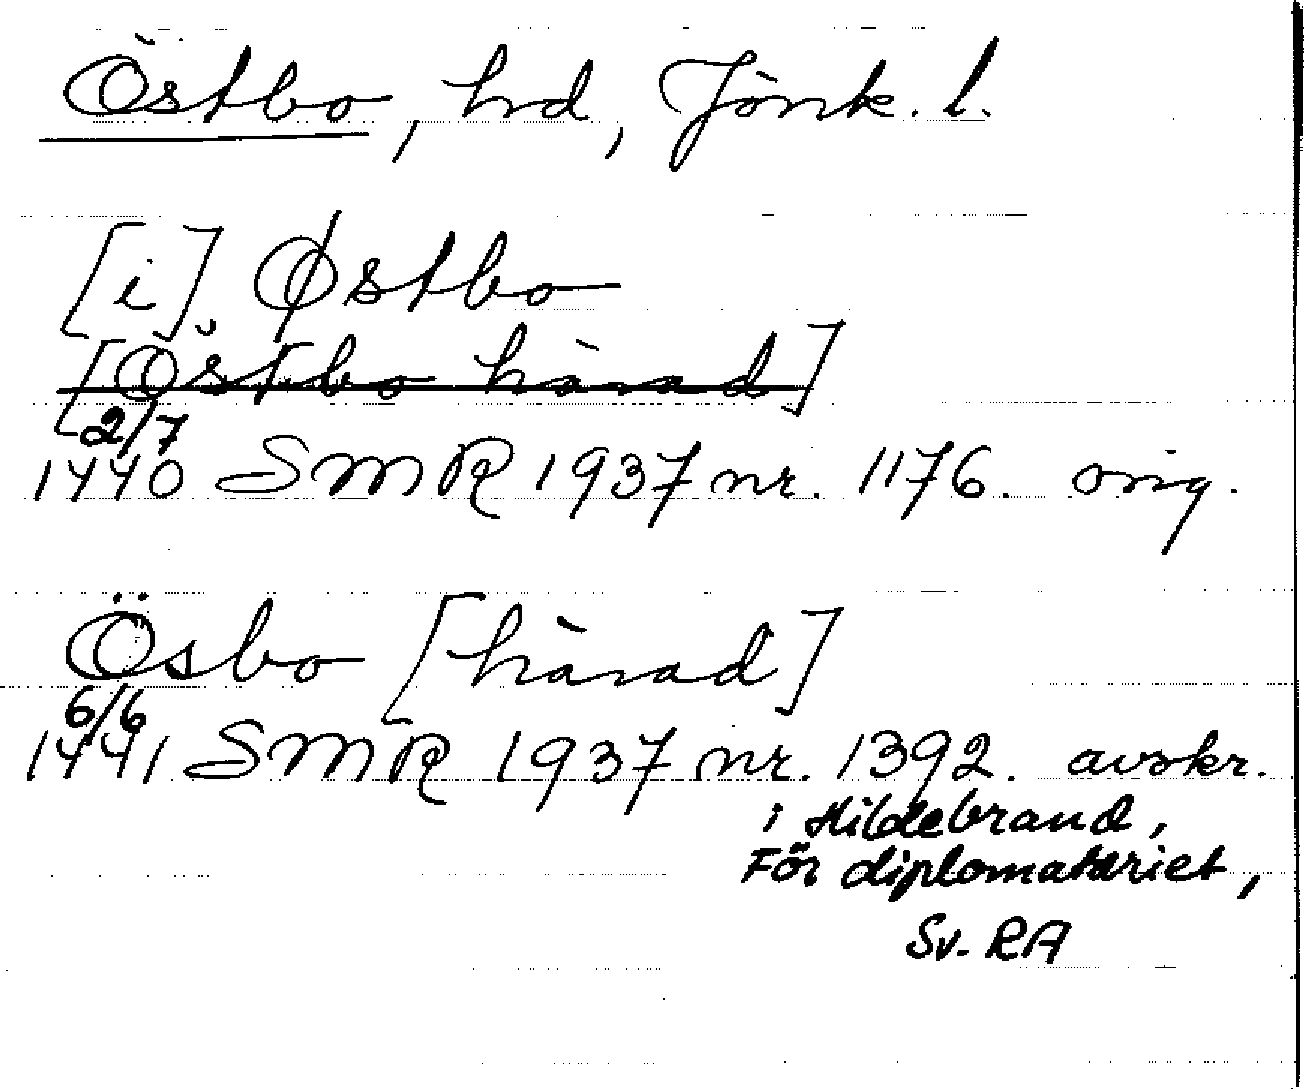 Östbo, hd, Jönk. l.
[i] Østbo
[Östbo härad]
2/7
1440 SMR 1937 nr. 1176. orig.
Ösbo [härad]
6/6
1441 SMR 1937 nr. 1392. avskr.
i Hildebrand,
För diplomatariet,
Sv. RA